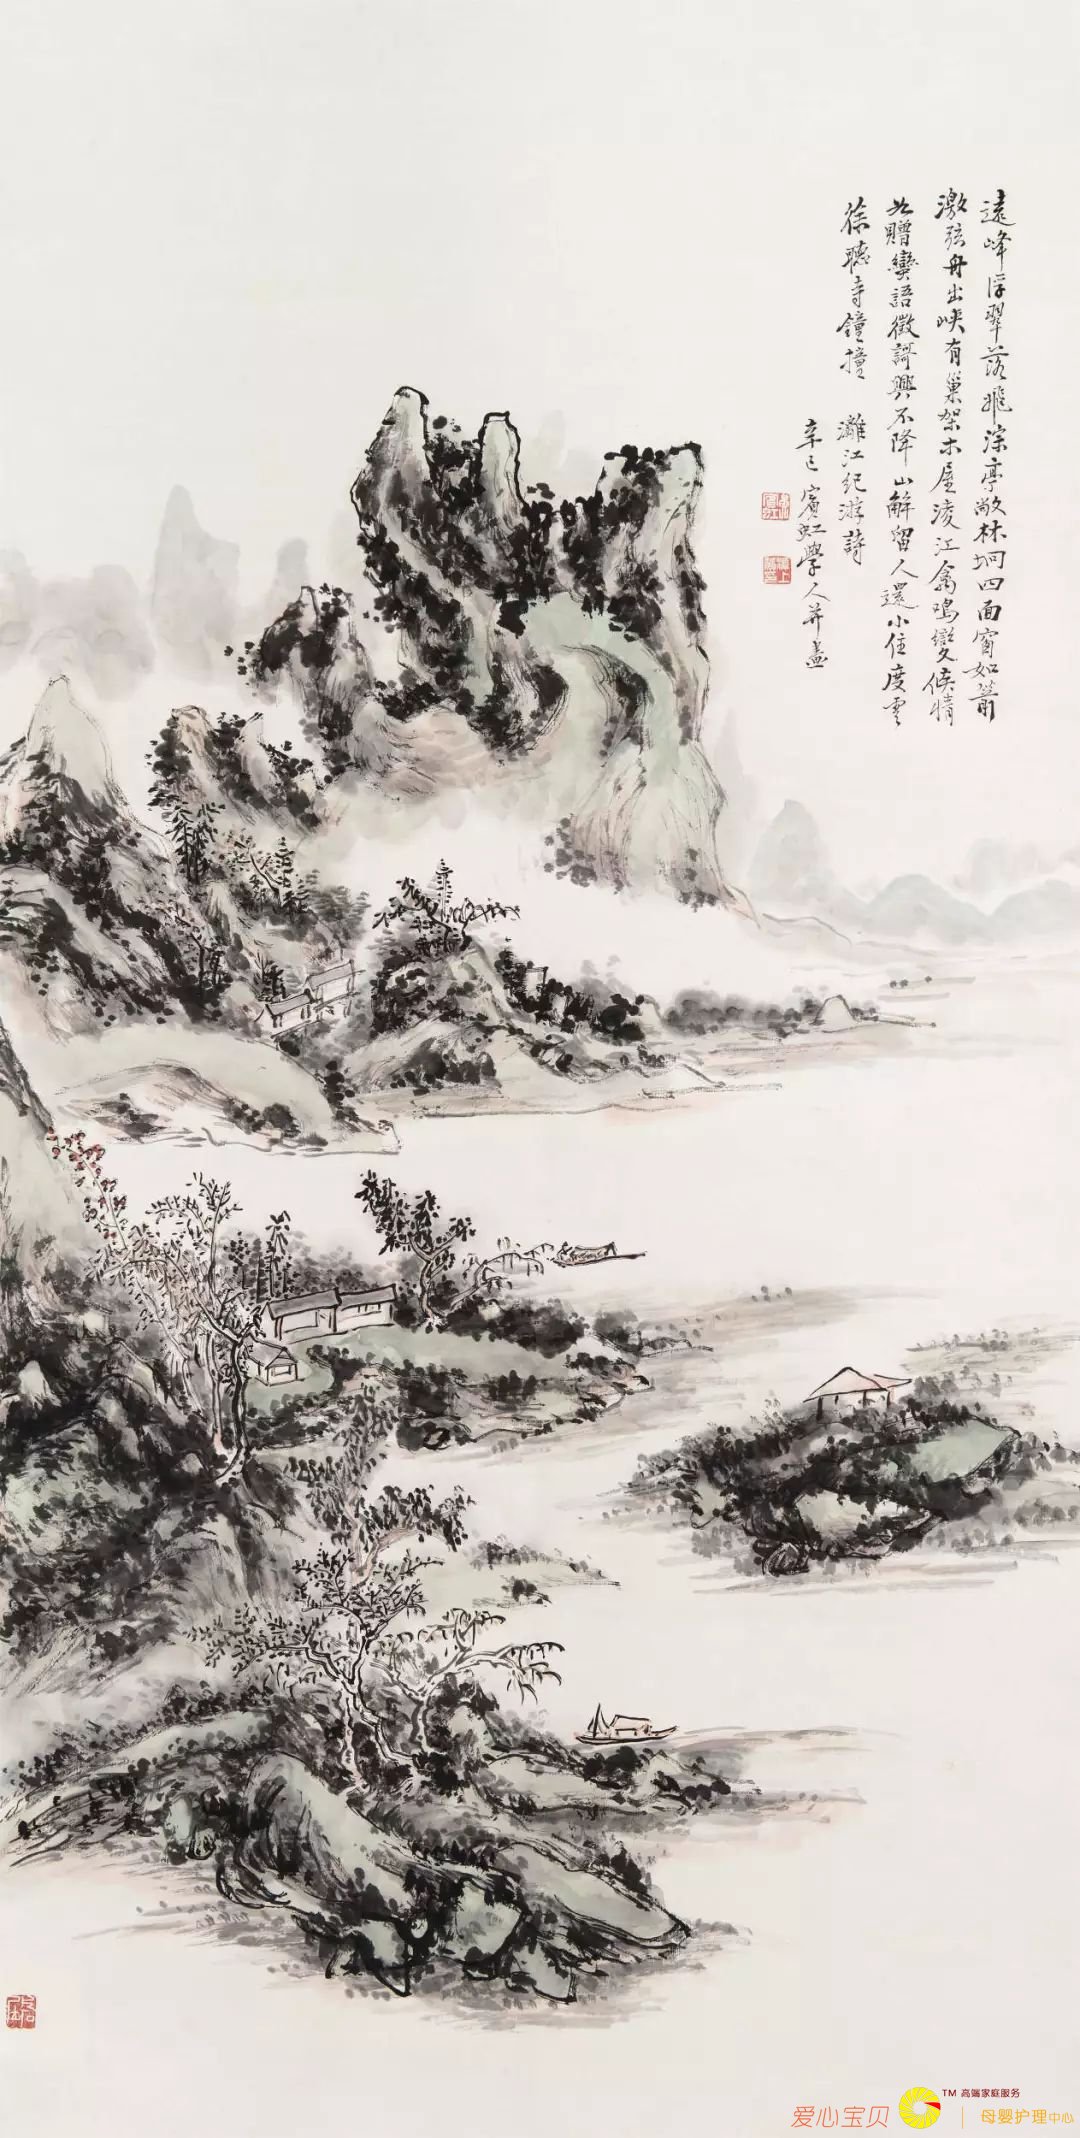 遠峰浮翠落飛淙亭敞林坰四面窗如箭
激弦舟出峽有巢架木屋淩江禽鳴變候情
如贈蠻語徵謌興不降山解留人還小住度雲
徐聽寺鐘撞 灕江紀游詩
辛巳賓虹學人并畫
爱心宝贝
TM 高端家庭服务
母婴护理中心